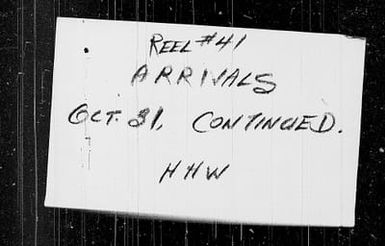 REEL #41
ARRIVALS
OCT. 31, CONTINUED.
HHW